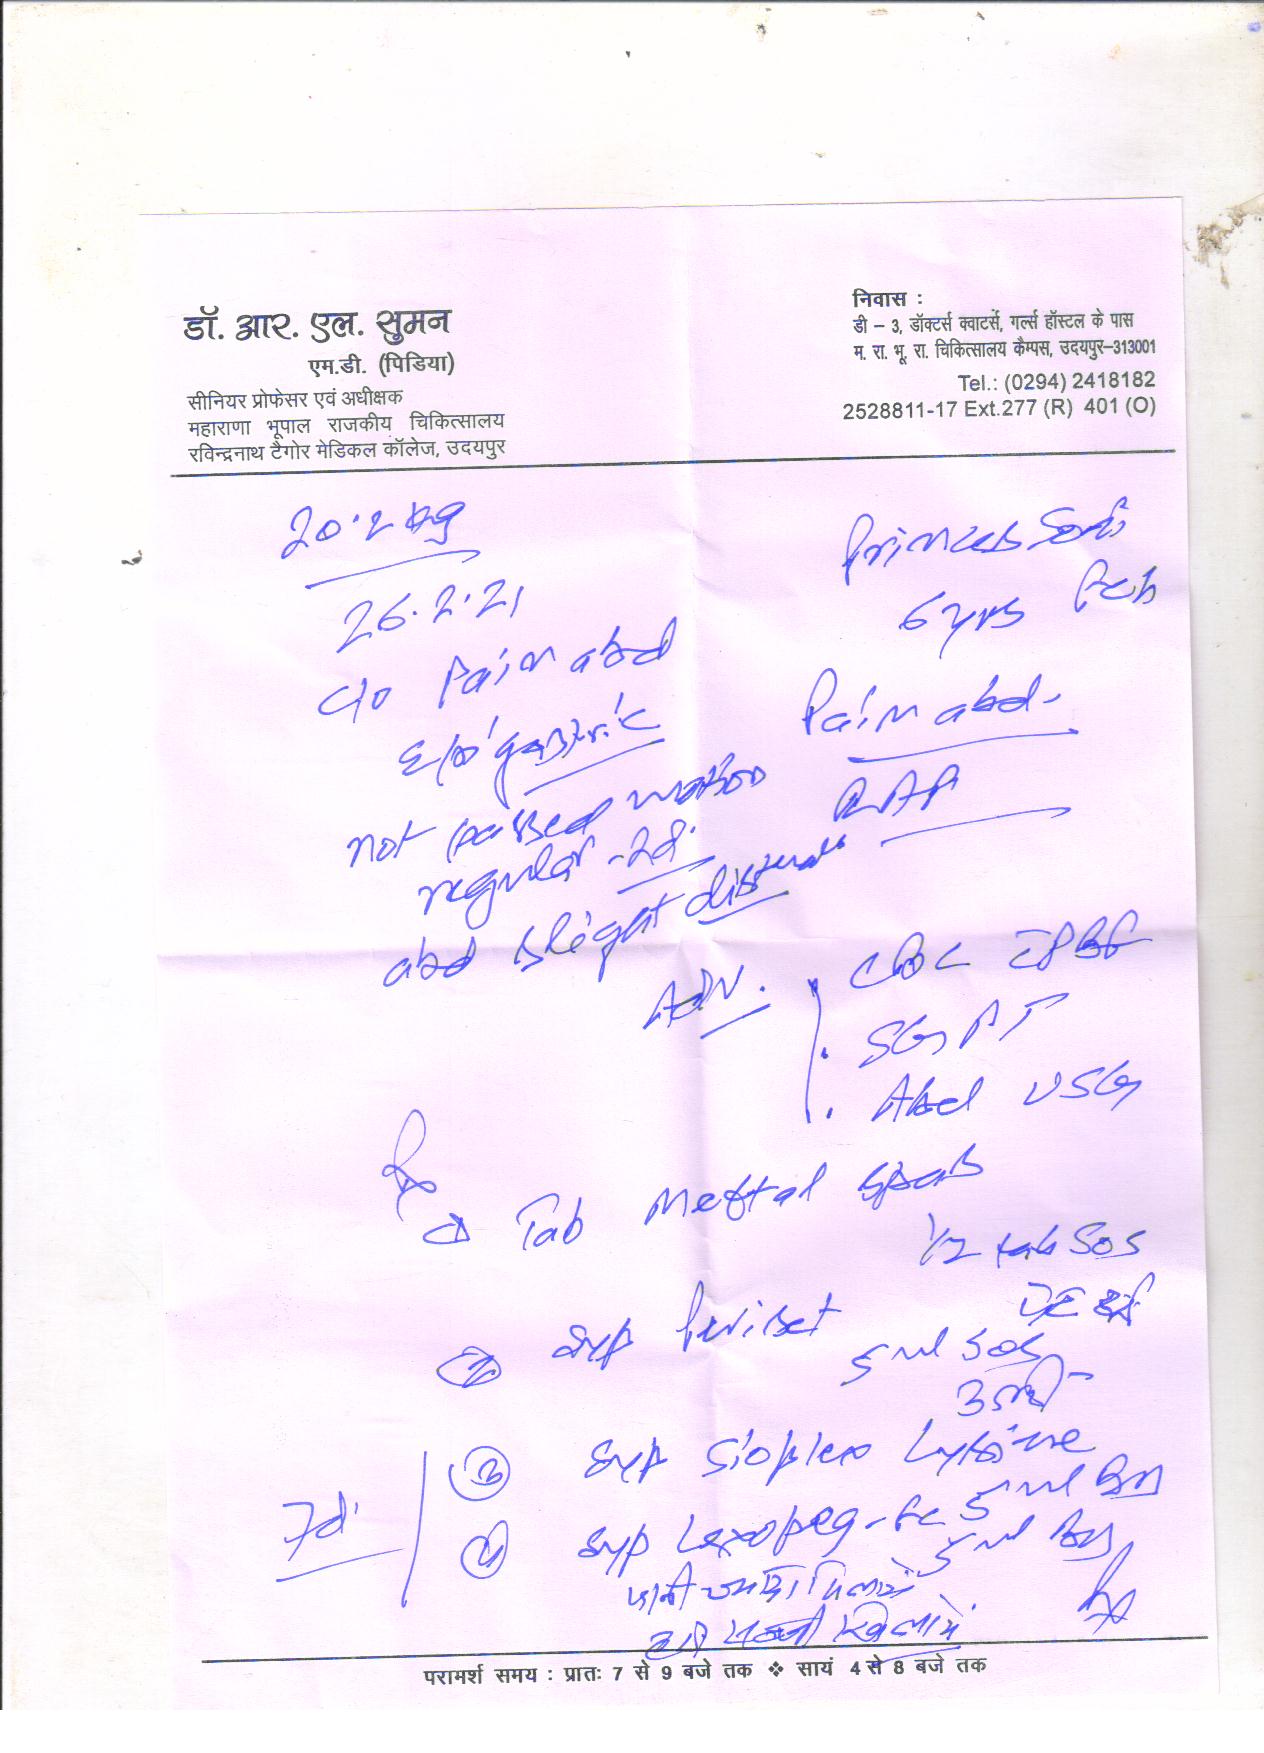 डॉ. आर. एल. सुमन
एम.डी. (पिडिया)
सीनियर प्रोफेसर एवं अधीक्षक
महाराणा भूपाल राजकीय चिकित्सालय
रविन्द्रनाथ टैगोर मेडिकल कॉलेज, उदयपुर
निवास :
डी – 3, डॉक्टर्स क्वाटर्स, गर्ल्स हॉस्टल के पास
म. रा. भू. रा. चिकित्सालय कैम्पस, उदयपुर–313001
Tel.: (0294) 2418182
2528811-17 Ext.277 (R) 401 (O)
20.2 kg
26.2.21
c/o Pain abd
Epigastric
not passed motion
regular - 2d.
abd slight
6 yrs
Pain abd.
RAP
Adv.
CBC
SGPT
Abd USG
Rx
① Tab Meftal Spas
1/2 tab SOS
② Syp
5 ml SOS
उल्टी
7d
③ Syp
5 ml
④ Syp
5 ml
पानी ज्यादा पिलायें
हरी सब्जी खिलायें
परामर्श समय : प्रातः 7 से 9 बजे तक ❖ सायं 4 से 8 बजे तक